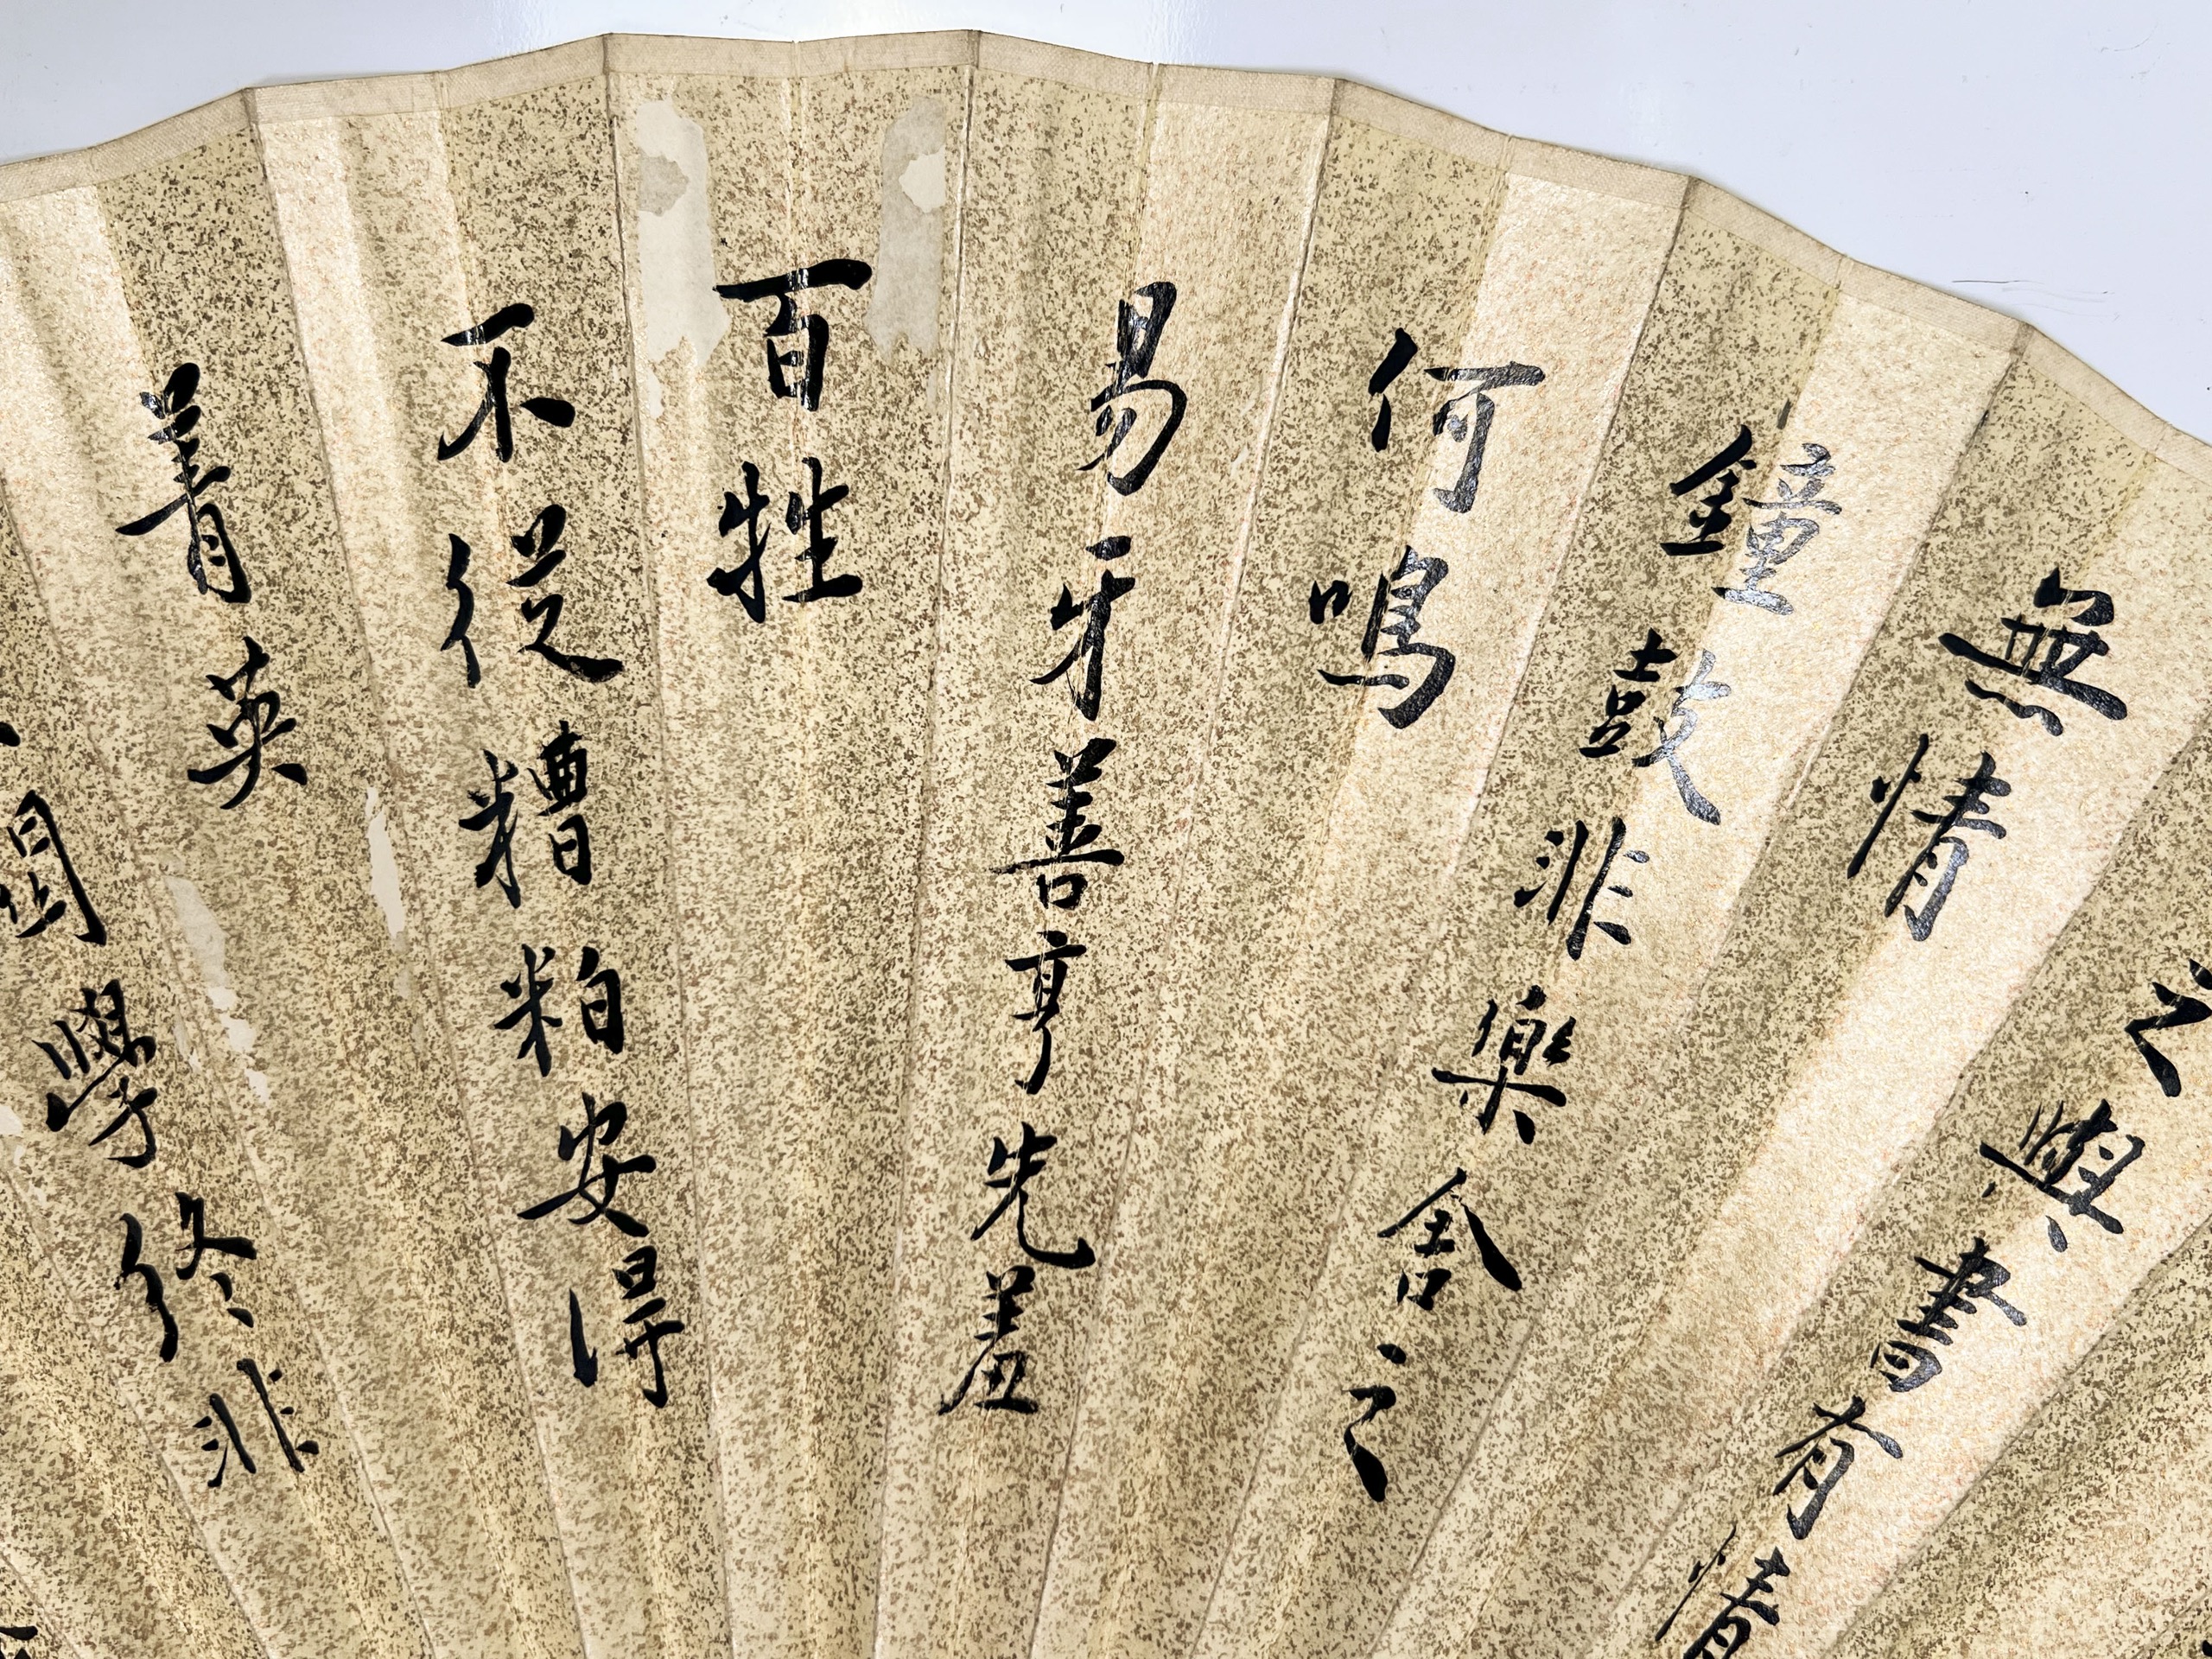 之與書有情
無情
鐘鼓非樂舍之
何鳴
易牙善亨先羞
百牲
不從糟粕安得
菁英
關學終非